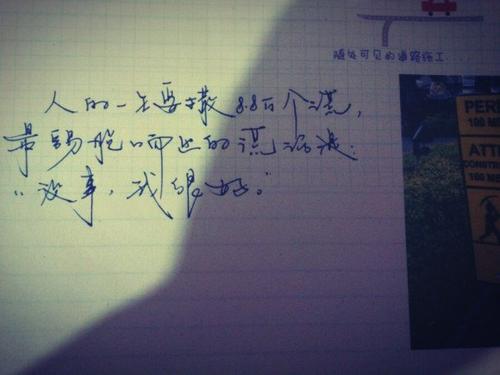 随处可见的道路施工...
人的一生要撒8.8万个谎,
最易脱口而出的谎话是:
“没事,我很好。”
PER
100 M
ATT
CONST
100 M